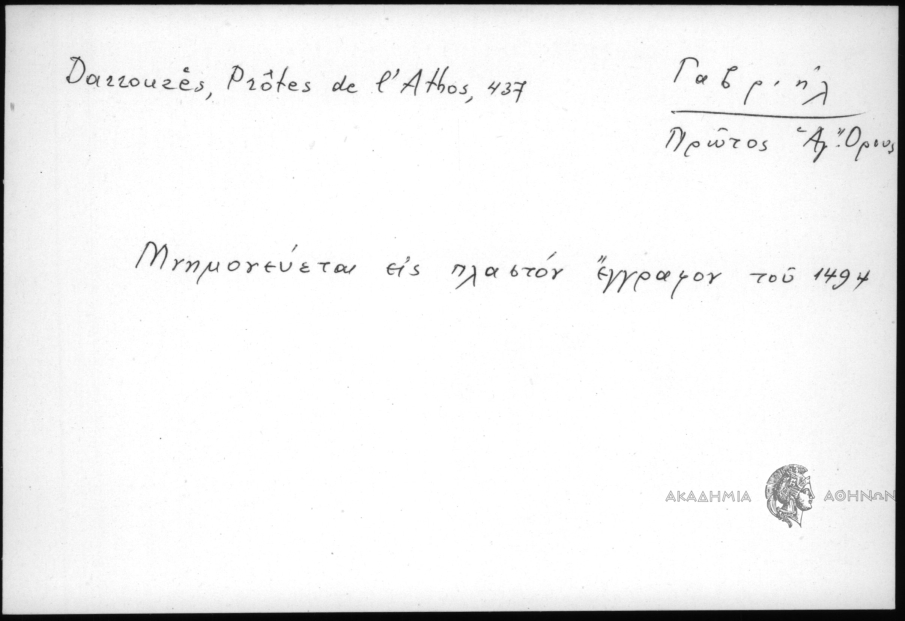 Darrouzès, Prôtes de l'Athos, 437
Γαβριήλ
Πρῶτος Ἁγ. Ὄρους
Μνημονεύεται εἰς πλαστόν ἔγγραφον τοῦ 1494
ΑΚΑΔΗΜΙΑ ΑΘΗΝΩΝ